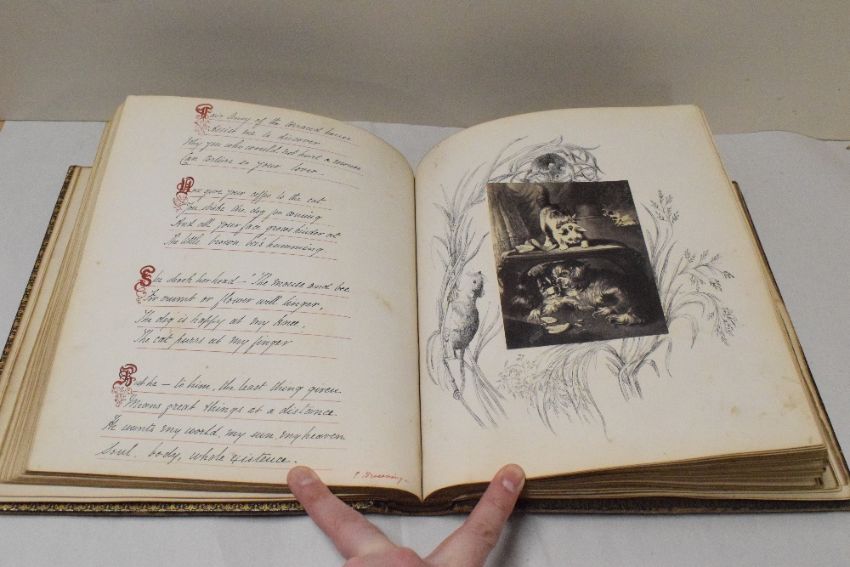 Fair Amy of the terraced house
Assist me to discover
Why you who would not hurt a mouse
Can torture so your lover.
You give your coffee to the cat
You stroke the dog for coming
And all your face grows kinder at
The little brown bee's humming.
She shook her head – "The mouse and bee
For crumb or flower will linger,
The dog is happy at my knee
The cat purrs at my finger
But he – to him, the least thing given
Means great things at a distance
He wants my world, my sun, my heaven
Soul, body, whole existence.
Browning.